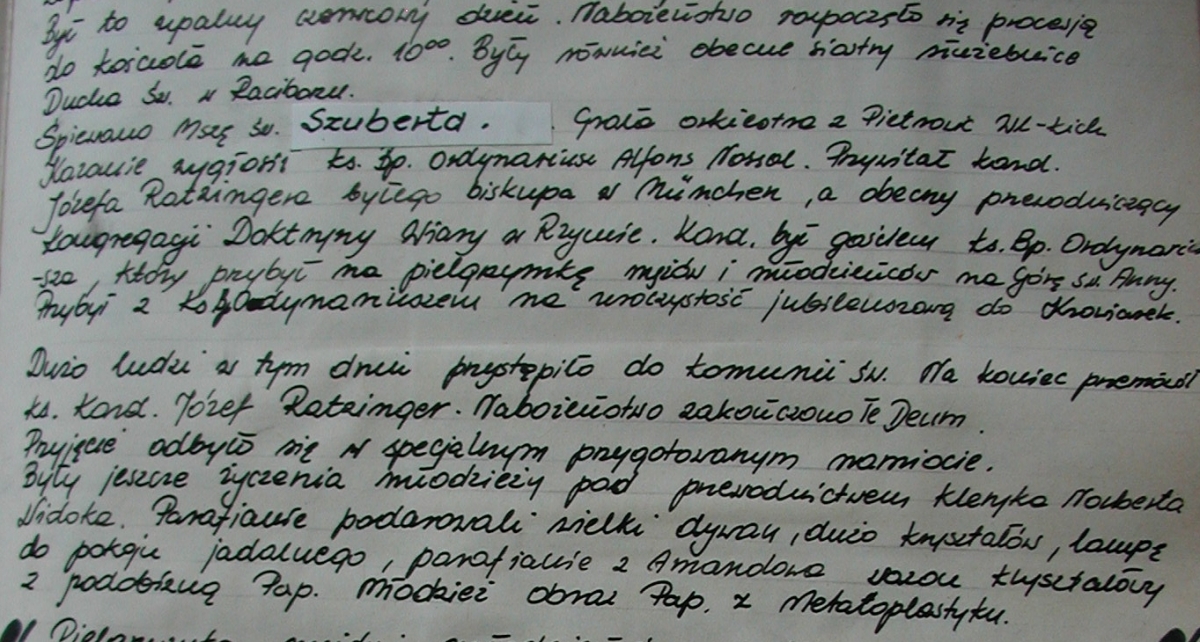 Był to upalny czerwcowy dzień. Nabożeństwo rozpoczęło się procesją
do kościoła na godz. 10⁰⁰. Były również obecne siostry służebnice
Ducha Św. w Raciborzu.
Śpiewano Mszę św. Szuberta. Grała orkiestra z Pietrowic Wl-kich
Kazanie wygłosił ks. Bp. Ordynariusz Alfons Nossol. Przywitał kard.
Józefa Ratzingera byłego biskupa w München, a obecny przewodniczący
Kongregacji Doktryny Wiary w Rzymie. Kard. był gościem ks. Bp. Ordynariu
-sza, który przybył na pielgrzymkę mężów i młodzieńców na Górę św. Anny.
Przybył z Ks Ordynariuszem na uroczystość jubileuszową do Krowiarek.
Dużo ludzi w tym dniu przystąpiło do komunii św. Na koniec przemówił
ks. Kard. Józef Ratzinger. Nabożeństwo zakończono Te Deum.
Przyjęcie odbyło się w specjalnym przygotowanym namiocie.
Były jeszcze życzenia młodzieży pod przewodnictwem kleryka Norberta
Widoka. Parafianie podarowali wielki dywan, dużo kryształów, lampę
do pokoju jadalnego, parafianie z Amandowa wazon kryształowy
z podobizną Pap. Młodzież obraz Pap. z Metaloplastyku.